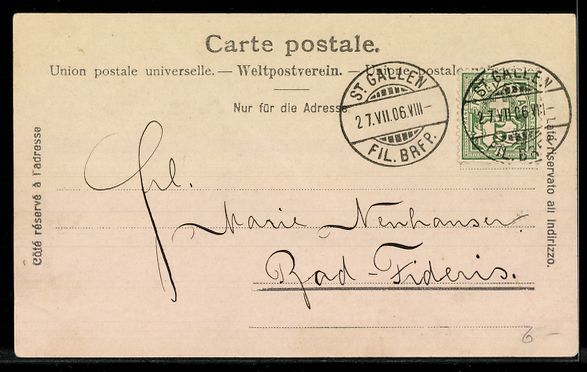 Carte postale.
Union postale universelle. — Weltpostverein. — Unione postale universale.
Nur für die Adresse
ST. GALLEN
27.VII.06.VIII–
FIL. BRFP.
ST. GALLEN
27.VII
FIL. BRF
Côté réservé à l'adresse
Lato riservato all indirizzo.
Frl.
Marie Neuhauser
Bad-Fideris.
6–